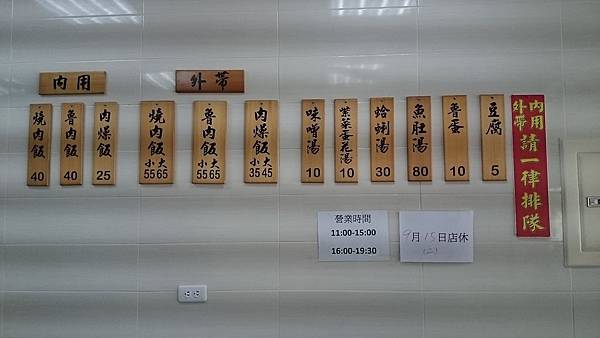 內用
外帶
燒肉飯
40
魯肉飯
40
肉燥飯
25
燒肉飯
小大
55 65
魯肉飯
小大
55 65
肉燥飯
小大
35 45
味噌湯
10
紫菜蛋花湯
10
蛤蜊湯
30
魚肚湯
80
魯蛋
10
豆腐
5
內用
外帶
請一律排隊
營業時間
11:00-15:00
16:00-19:30
9月15日店休
(二)